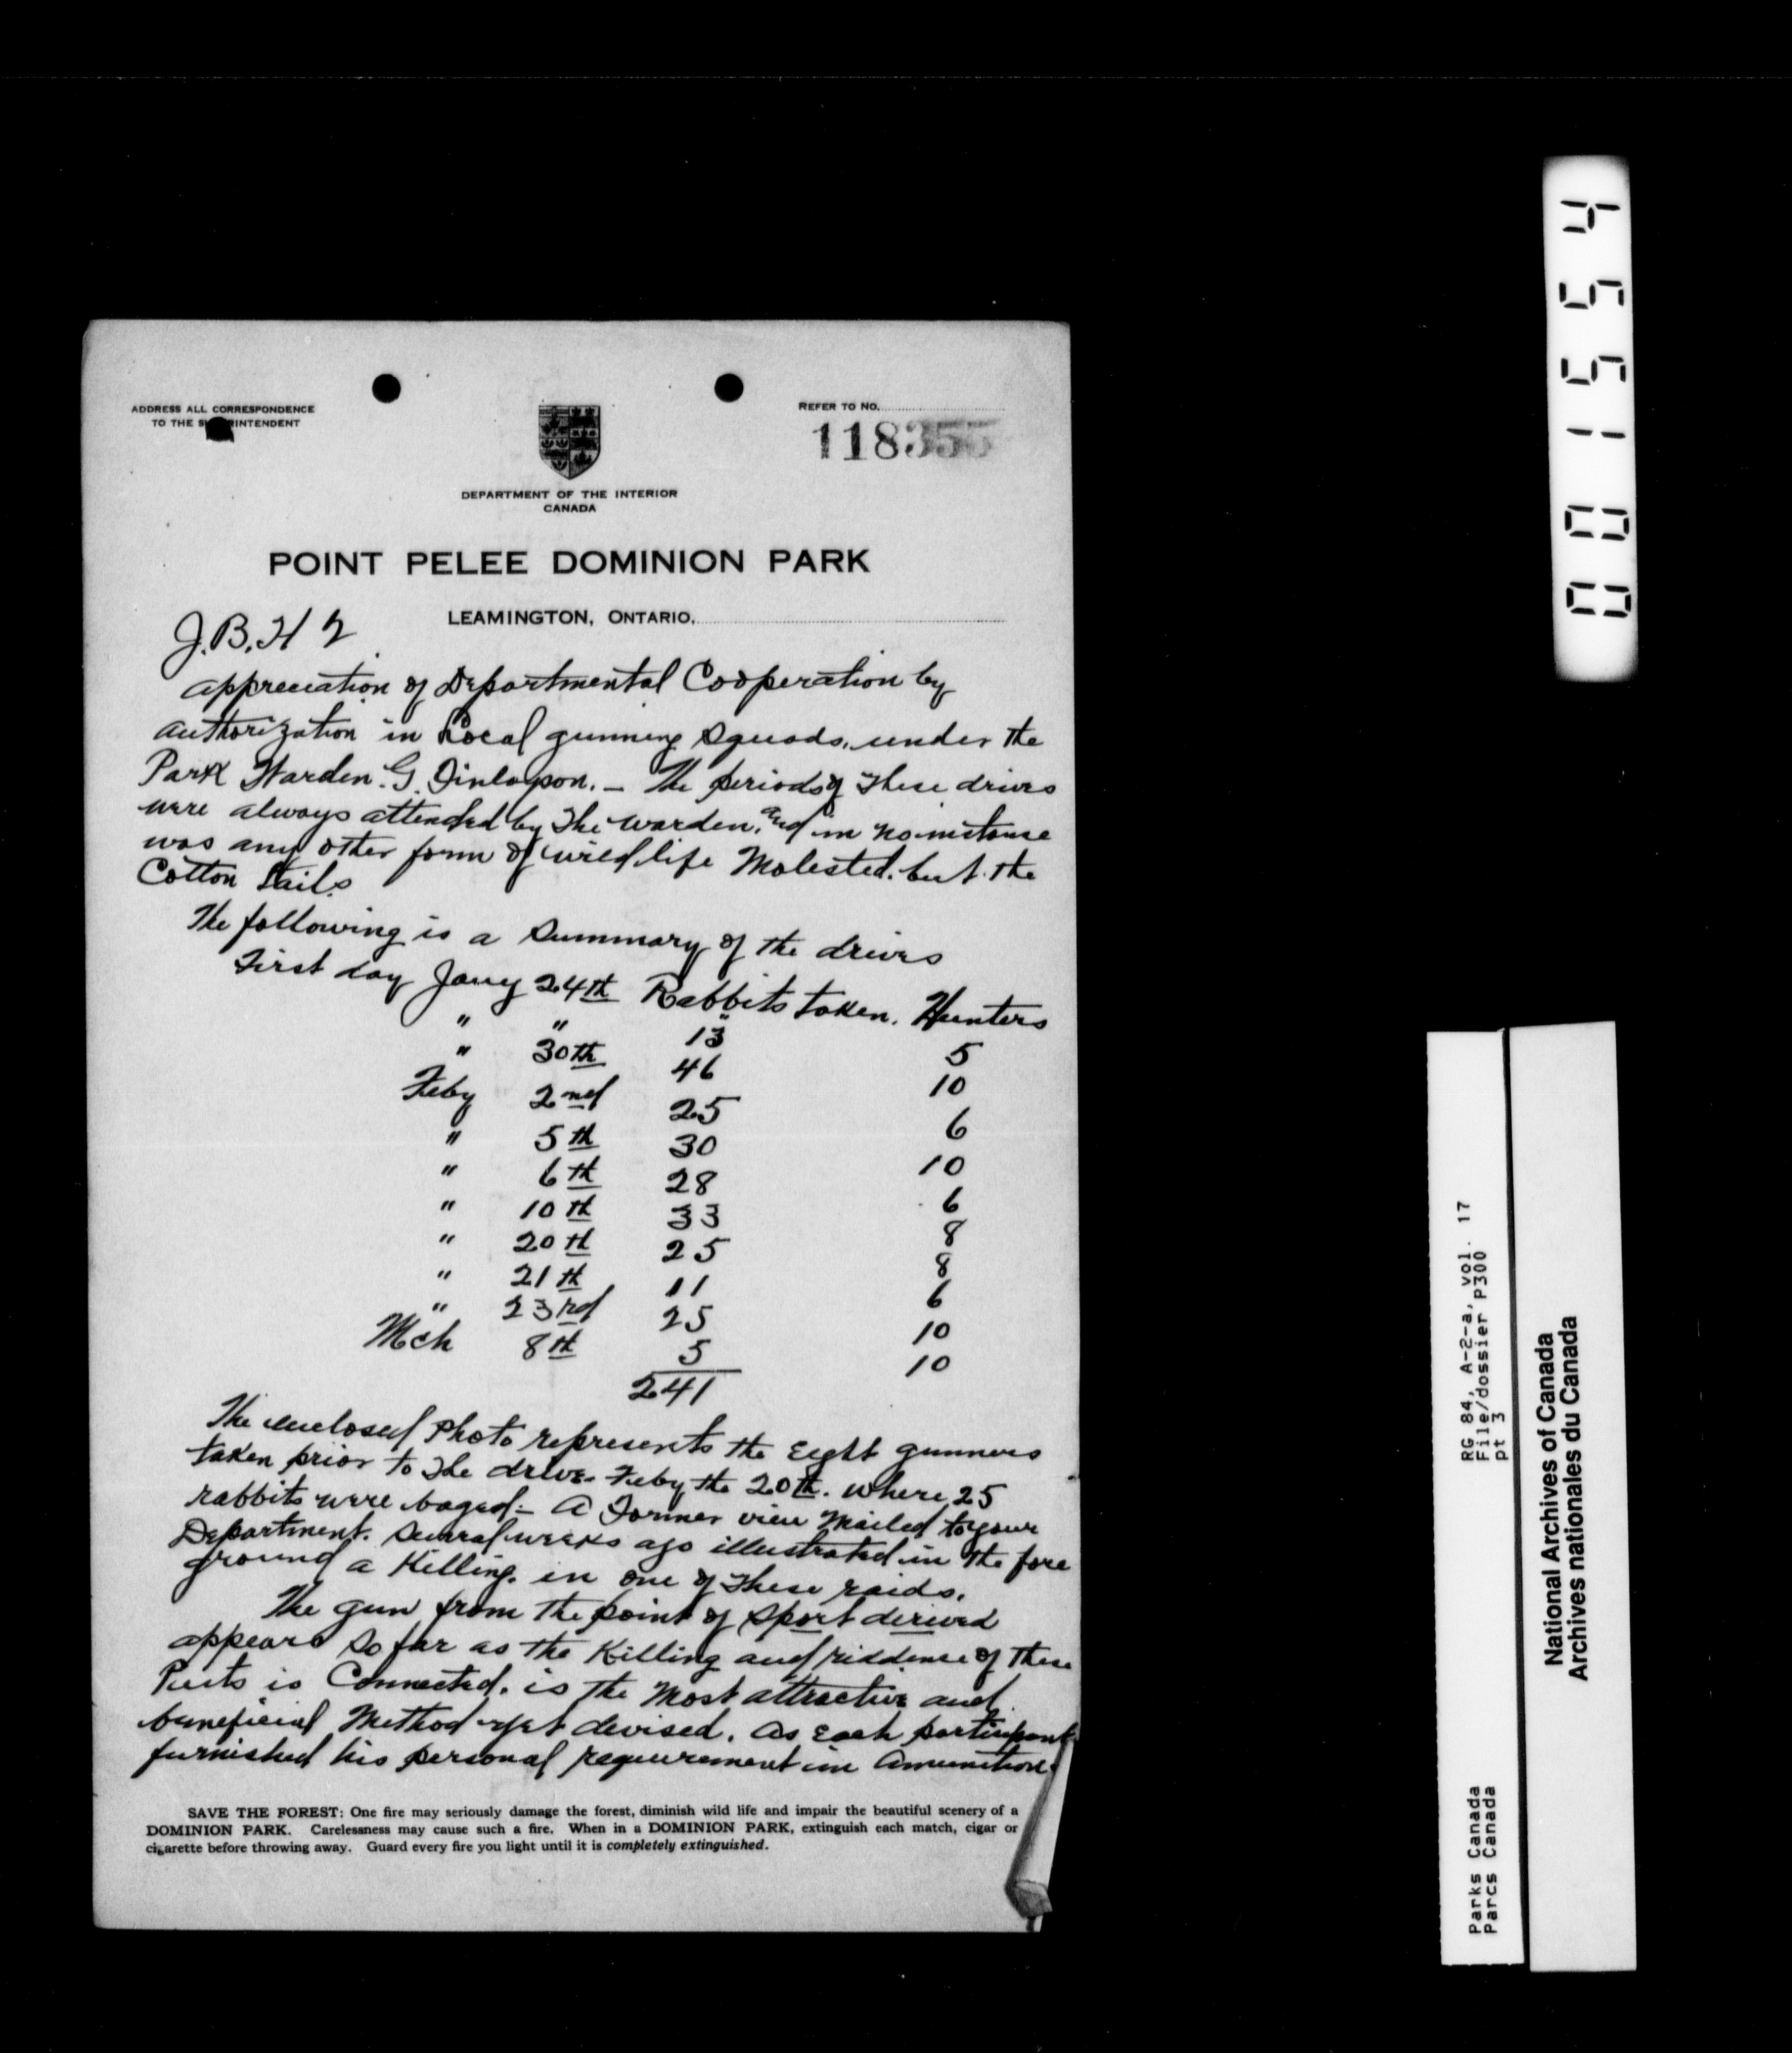 ADDRESS ALL CORRESPONDENCE
TO THE SUPERINTENDENT
REFER TO NO.
118355
DEPARTMENT OF THE INTERIOR
CANADA
POINT PELEE DOMINION PARK
LEAMINGTON, ONTARIO,
J.B.H 2
appreciation of Departmental Cooperation by
authorization in Local gunning squads, under the
Park Warden. G. Finlayson. — The periods of these drives
were always attended by the warden, and in no instance
was any other form of wild life Molested. but the
Cotton tails
The following is a Summary of the drives
First day Jany 24th Rabbits taken. Hunters
" " 13 5
" 30th 46 10
Feby 2nd 25 6
" 5th 30 10
" 6th 28 6
" 10th 33 8
" 20th 25 8
" 21th 11 6
" 23rd 25 10
Mch 8th 5 10
241
The enclosed Photo represents the Eight gunners
taken prior to the drive Feby the 20th. where 25
rabbits were baged:- A Former view Mailed to your
Department. Several weeks ago illustrated in the fore
ground a Killing. in one of these raids.
The gun from the point of sport derived
appears so far as the Killing and riddence of these
Pests is Connected. is the Most attractive and
beneficial Method yet devised. as Each participant
furnished his personal requirement in Amunition.
SAVE THE FOREST: One fire may seriously damage the forest, diminish wild life and impair the beautiful scenery of a
DOMINION PARK. Carelessness may cause such a fire. When in a DOMINION PARK, extinguish each match, cigar or
cigarette before throwing away. Guard every fire you light until it is completely extinguished.
001554
RG 84, A-2-a, vol. 17
File/dossier P300
pt 3
Parks Canada
Parcs Canada
National Archives of Canada
Archives nationales du Canada